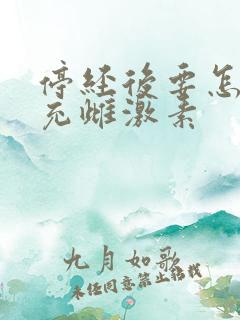 停经後要怎
充雌激素
九月如歌
未经同意禁止转载